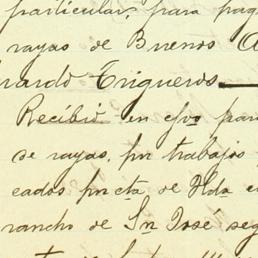 particular, para pag
rayas de Buenos A
rardo Trigueros
Recibió en efvo par
de rayas, por trabajos
cados por cta de Hda e
rancho de Sn José seg